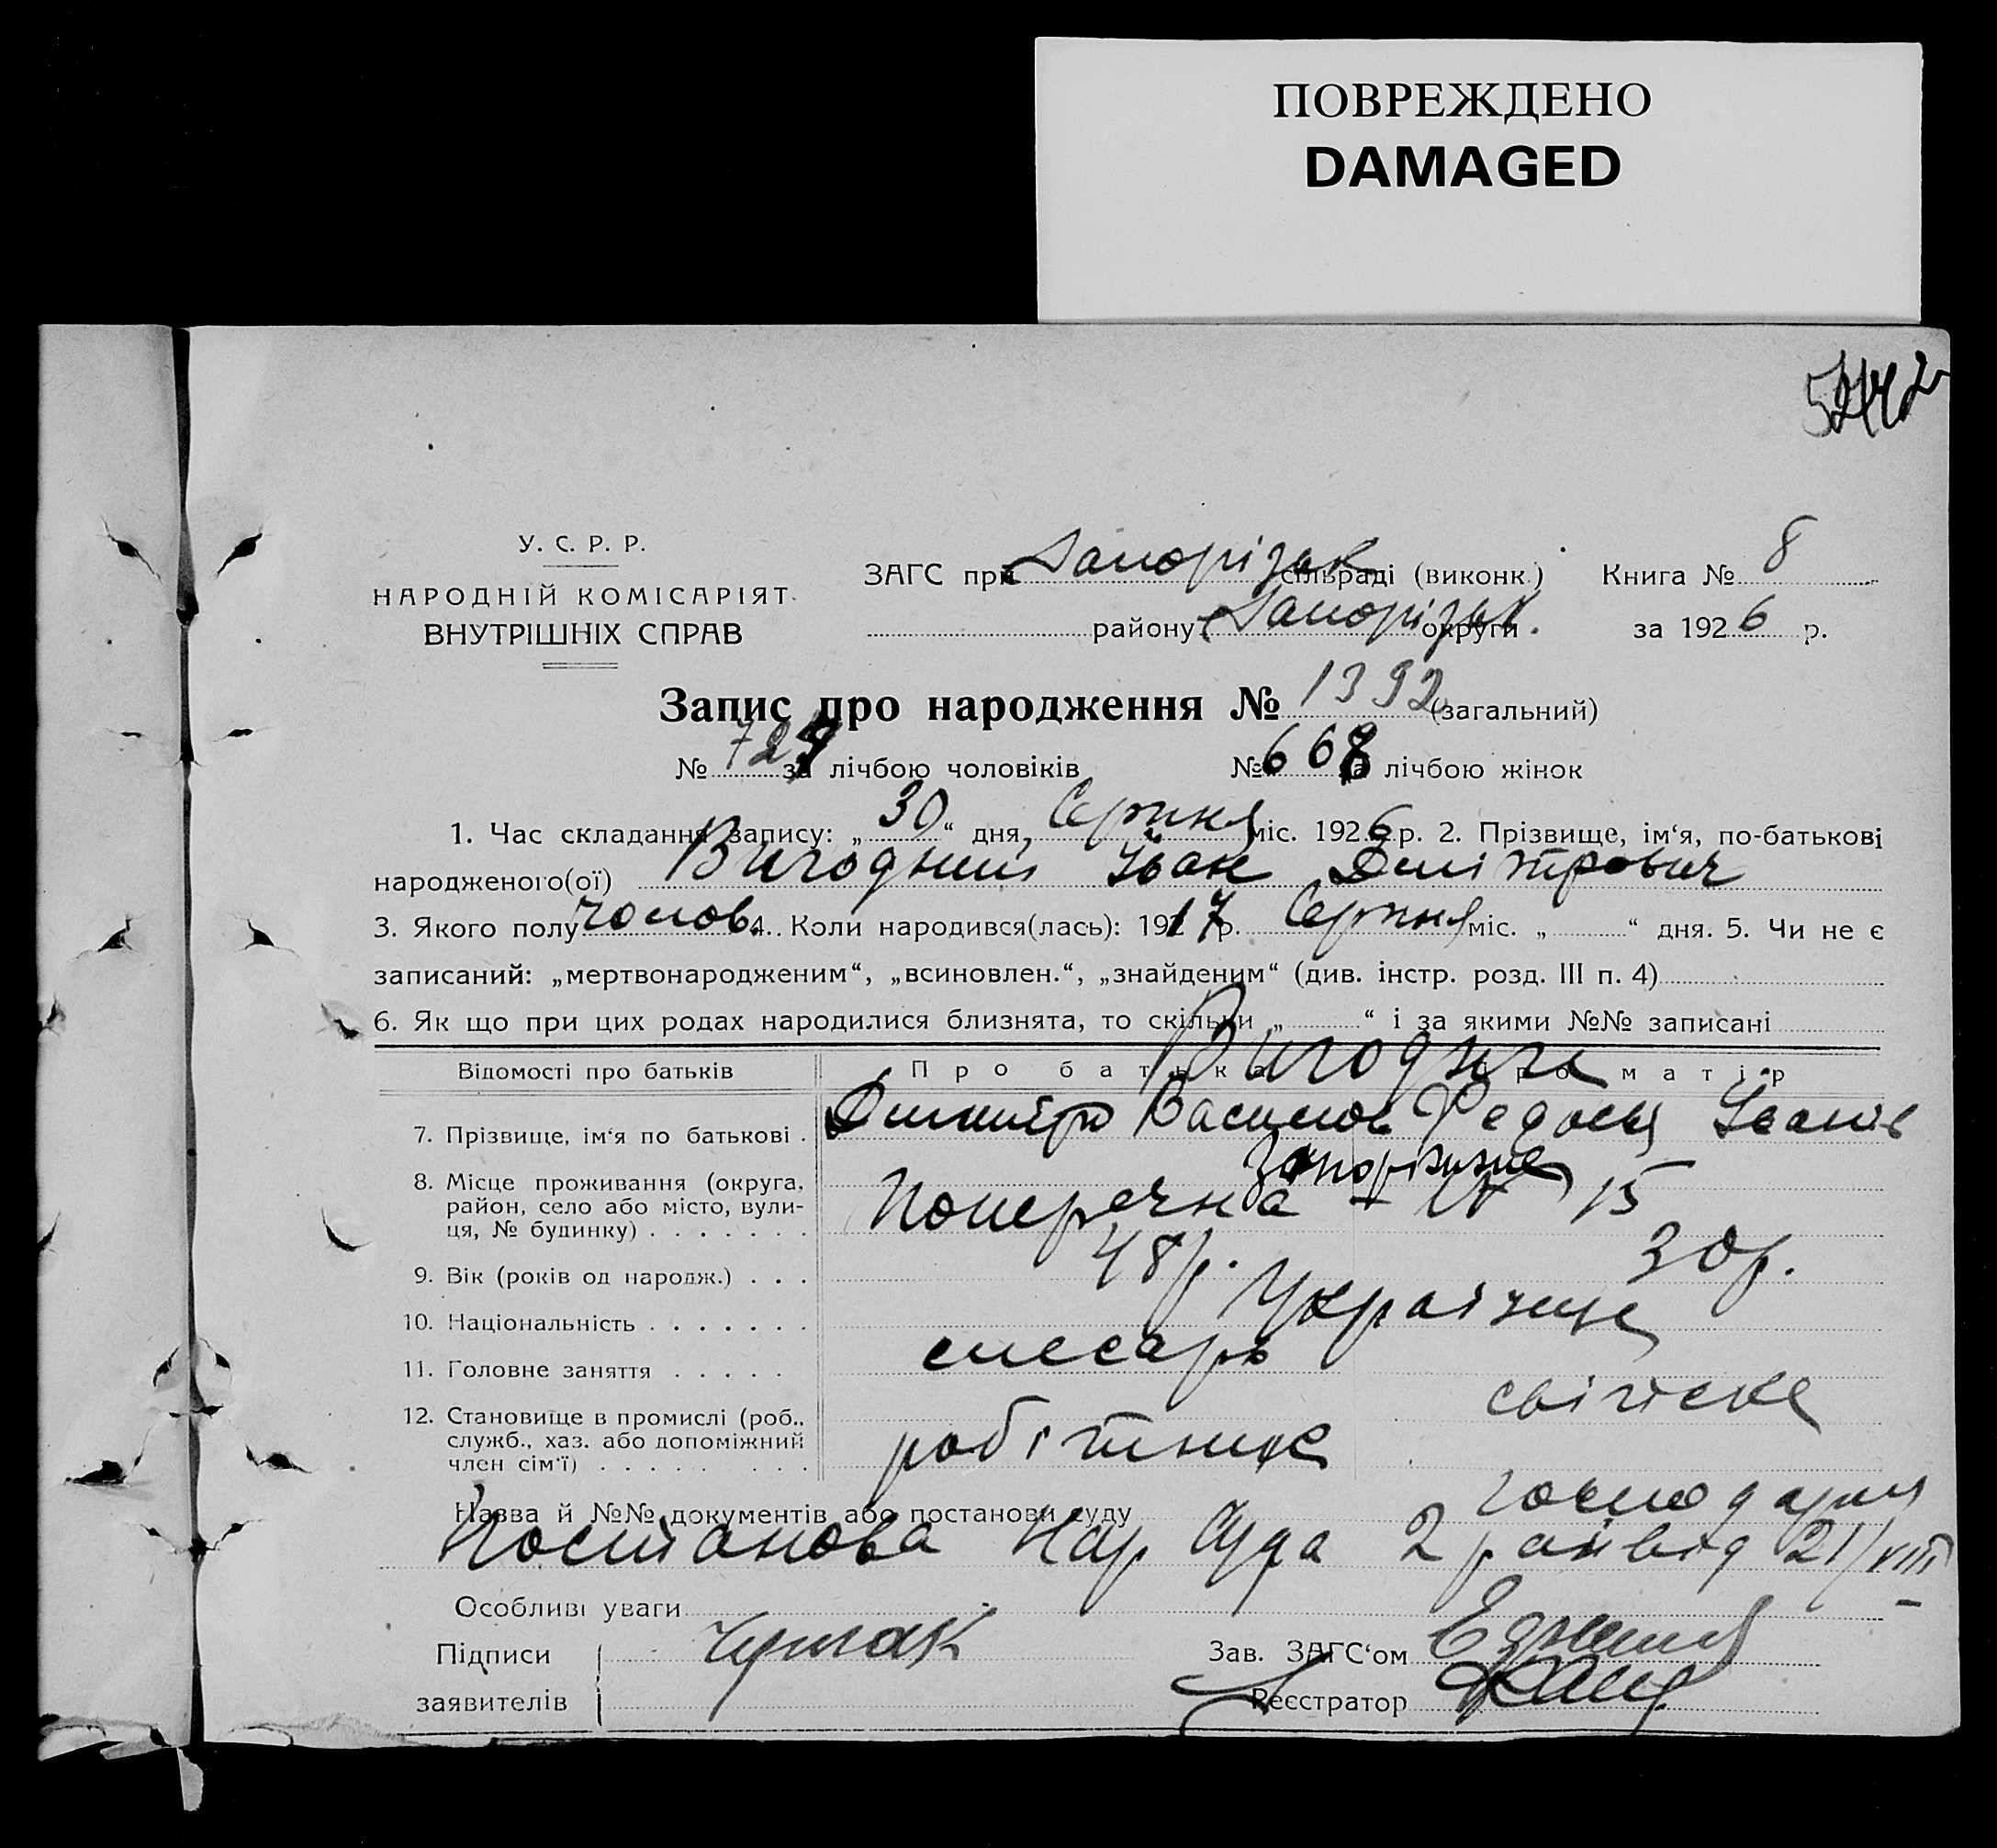 ПОВРЕЖДЕНО
DAMAGED
У. С. Р. Р.
НАРОДНІЙ КОМІСАРІЯТ
ВНУТРІШНІХ СПРАВ
ЗАГС при Запорізьк сільраді (виконк.) Книга № 8
району Запорізьк. округи за 1926 р.
Запис про народження № 1392 (загальний)
№ 724 за лічбою чоловіків № 668 за лічбою жінок
1. Час складання запису: „30“ дня, Серпня міс. 1926 р. 2. Прізвище, ім‘я, по-батькові
народженого(ої) Вигодний Іван Дмітрович
3. Якого полу чолов. 4. Коли народився(лась): 1917 р. Серпня міс. „ “ дня. 5. Чи не є
записаний: „мертвонародженим“, „всиновлен.“, „знайденим“ (див. інстр. розд. III п. 4)
6. Як що при цих родах народилися близнята, то скільки „ “ і за якими №№ записані
Вигодні
Відомості про батьків Про батька Про матір
7. Прізвище, ім‘я по батькові . Дмитро Василов Федосья Іванів
Запоріжжє
8. Місце проживання (округа, район, село або місто, вули-ця, № будинку) . . . . . . . Поперечна 15
9. Вік (років од народж.) . . . 48 р. 30 р.
10. Національність . . . . . . . Українці
11. Головне заняття . . . . . слесарь
12. Становище в промислі (роб., служб., хаз. або допоміжний член сім‘ї) . . . . . . . . робітник
господарки
Назва й №№ документів або постанови суду
Постанова Нар Суда 2 рай від 21/VIII
Особливі уваги
Підписи
заявителів
Зав. ЗАГС‘ом
Реєстратор